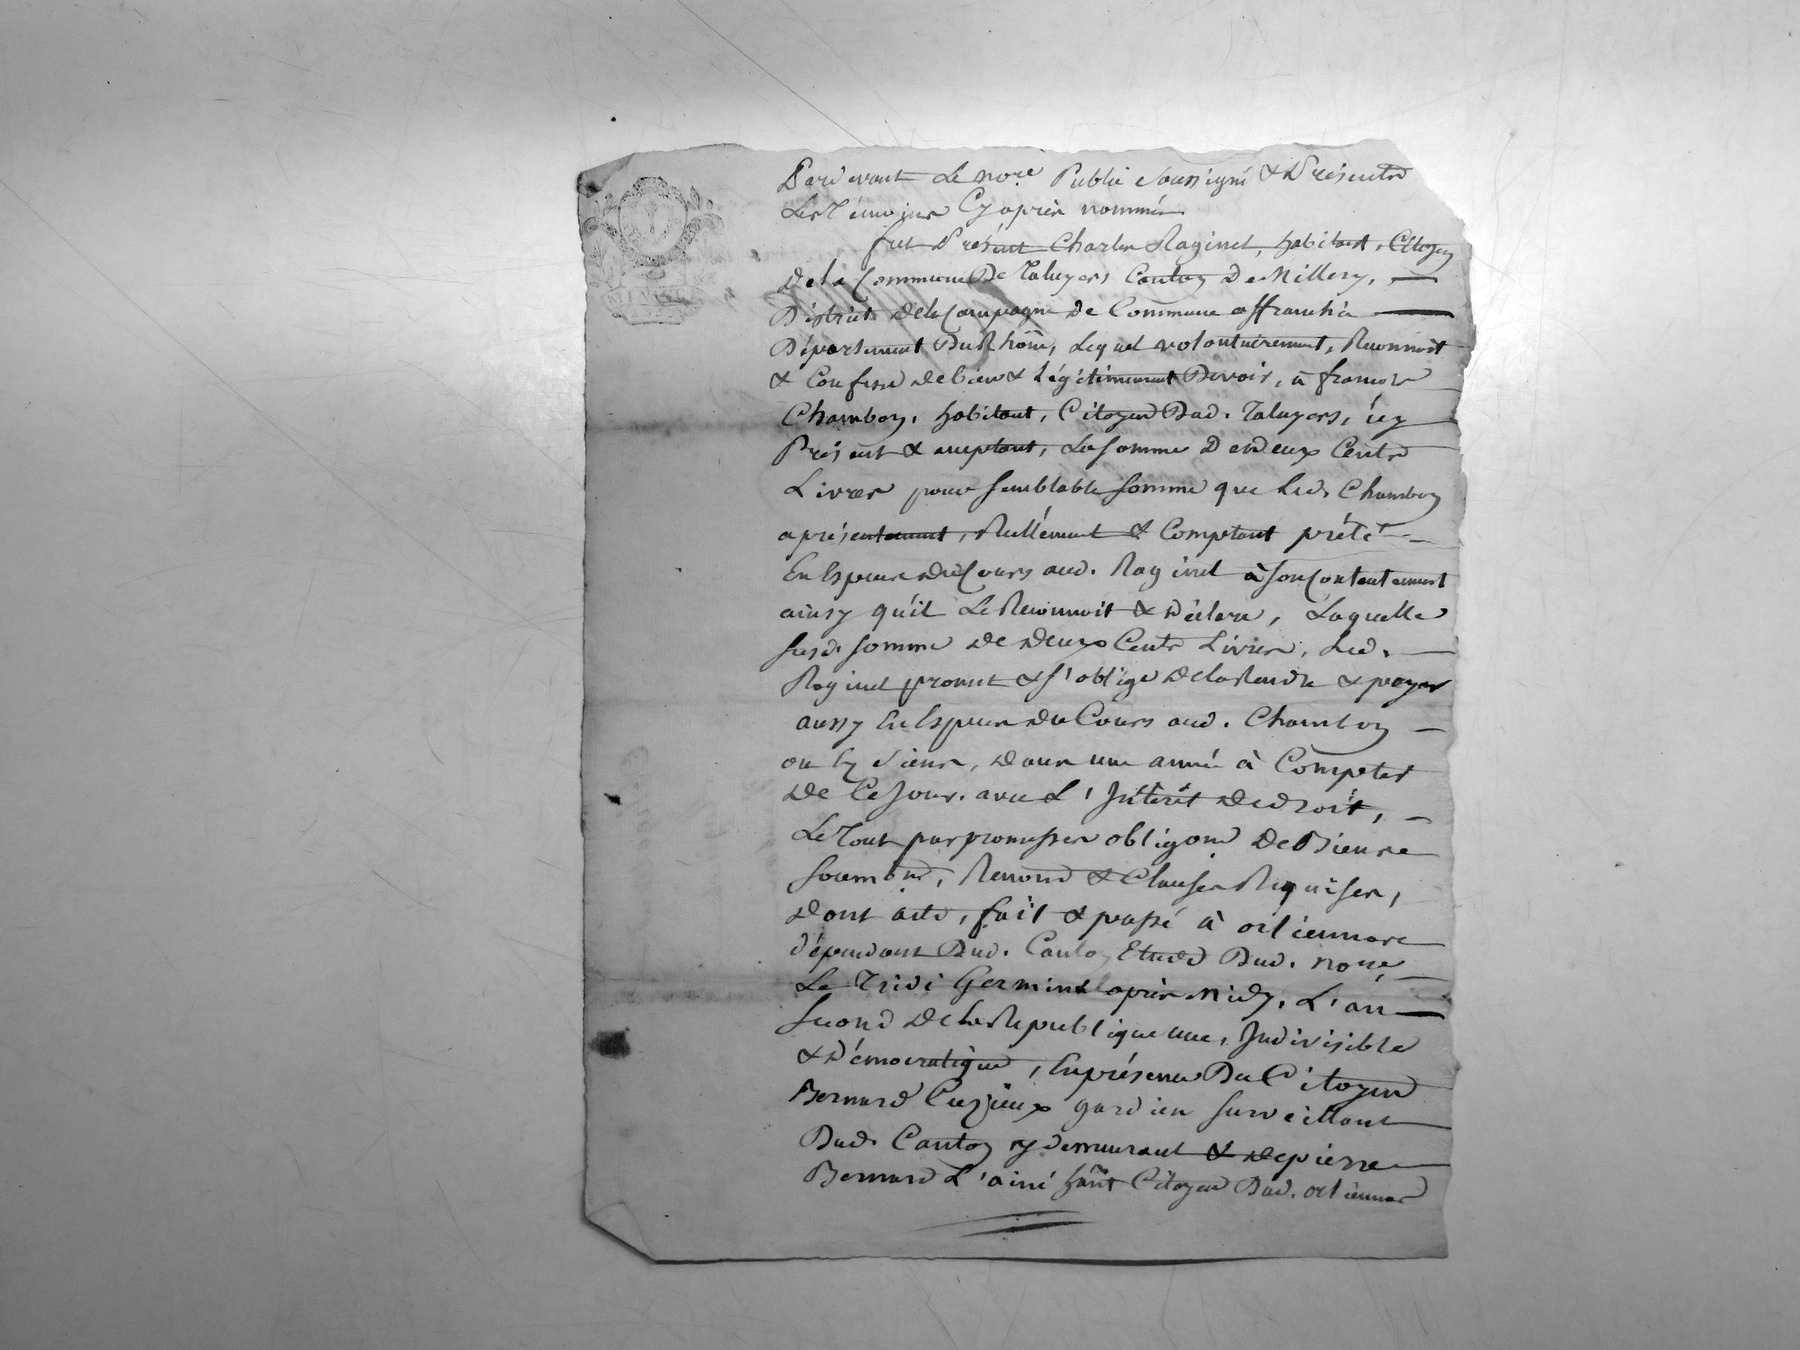 Pardevant Le no.re Public soussigné & Présents
Les Témoins Cy après nommés
fut Présent Charles Raginel, habitant, Citoyen
De la Commune De Taluyers Canton De Millery,
District De la Campagne De Commune affranchie
Département Du Rhône, Lequel volontairement, Reconnoit
& Confesse de bien & Légitimement Devoir, à françois
Chambon, habitant, Citoyen Dud. Taluyers, icy
Présent & aceptant, La somme De Deux Cents
Livres pour semblable somme que Led. Chambon
a présentement, Réellement & Comptant prêté
En Espèces du Cours aud. Raginel à son Contentement
ainsy qu'il Le Reconnoit & Déclare, Laquelle
susd. somme De Deux Cents Livres, Led.
Raginel promet & s'oblige De la Rendre & payer
aussy En Espèces Du Cours aud. Chambon
ou Ey Siens, Dans une année à Compter
De Ce Jour. avec L'Intérêt De droit,
Le Tout par promesses obligons De Biens
soumons, Renons & Clauses Requises,
Dont acte, fait & passé à orliennas
dépendant Dud. Canton Etude Dud. nore
Le Tridi Germinal après Midy, L'an
second De la République une, Indivisible
& Démocratique, En présence Du Citoyen
Bernard Cuzieux gardien surveillant
Dud. Canton y demeurant & De pierre
Bernard L'ainé hant Citoyen Dud. orliennas
MINUTE